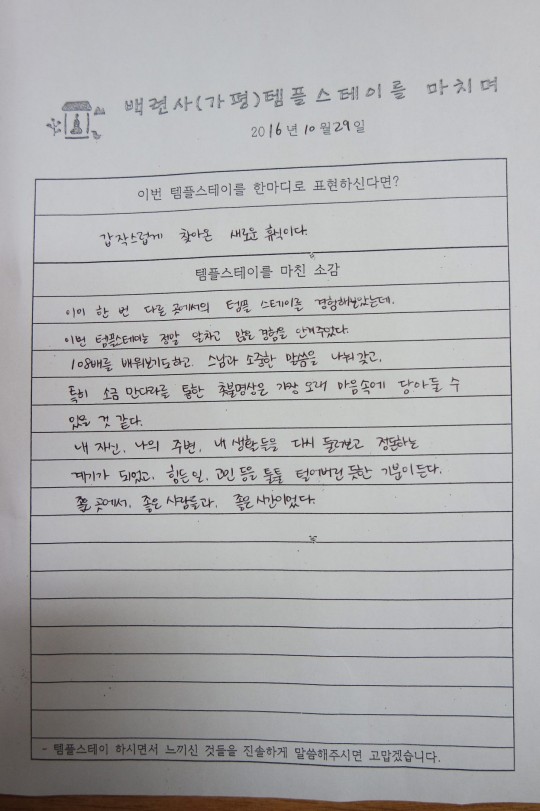 백련사(가평)템플스테이를 마치며
2016년 10월29일
이번 템플스테이를 한마디로 표현하신다면?
갑작스럽게 찾아온 새로운 휴식이다.
템플스테이를 마친 소감
이미 한 번 다른 곳에서의 템플 스테이를 경험해보았는데,
이번 템플스테이는 정말 알차고 많은 경험을 안겨주었다.
108배를 배워보기도하고, 스님과 소중한 말씀을 나눠 갖고,
특히 소금 만다라를 통한 촛불명상은 가장 오래 마음속에 담아둘 수
있을 것 같다.
내 자신, 나의 주변, 내 생활등을 다시 둘러보고 정돈하는
계기가 되었고, 힘든일, 고민 등을 툴툴 털어버린 듯한 기분이 든다.
좋은 곳에서, 좋은 사람들과, 좋은 시간이었다.
- 템플스테이 하시면서 느끼신 것들을 진솔하게 말씀해주시면 고맙겠습니다.